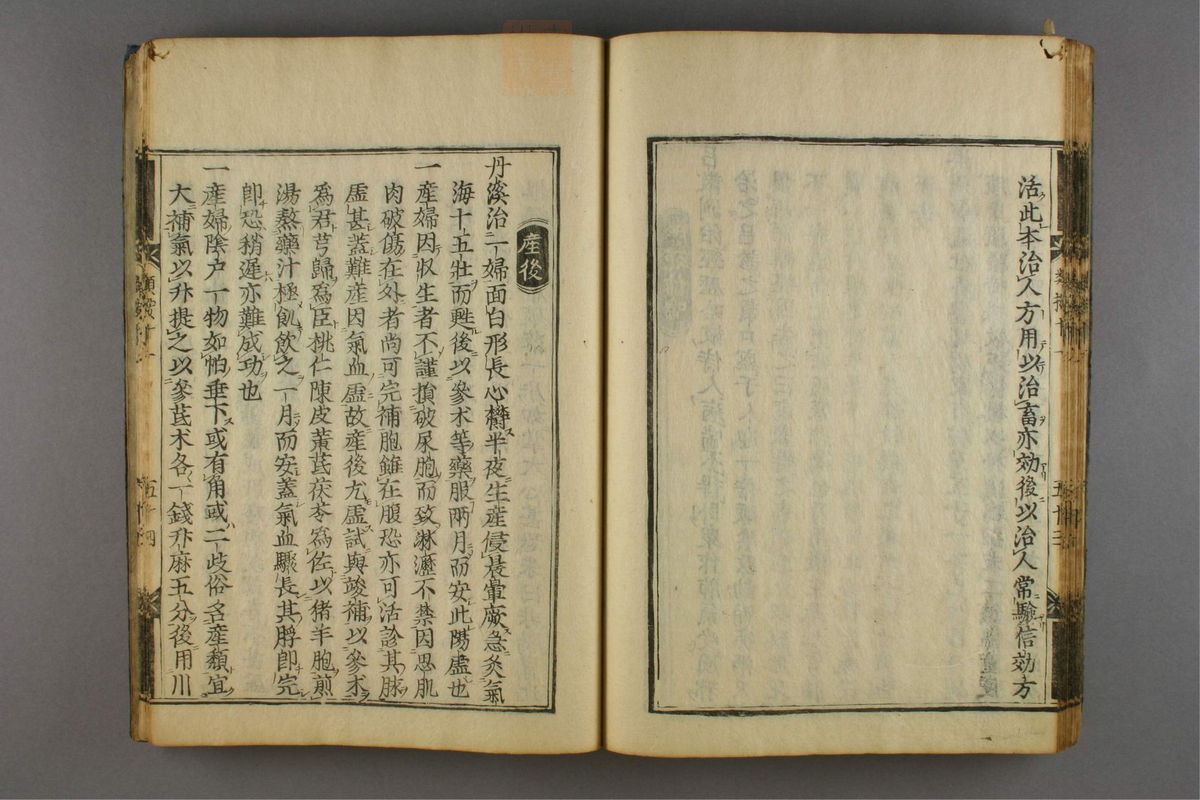 活此本治人方用以治畜亦効後以治人常驗信効方
五十三
産後
丹溪治一婦面白形長心欝半夜生産侵晨暈厥急灸氣
海十五壯而甦後以參术等藥服兩月而安此陽虛也
一産婦因収生者不謹損破尿胞而致淋瀝不禁因思肌
肉破傷在外者尚可完補胞雖在腹恐亦可活診其脉
虛甚蓋難産因氣血虛故産後尤虛試與峻補以參术
爲君芎歸爲臣桃仁陳皮黄芪茯苓爲佐以猪羊胞煎
湯熬藥汁極飢飲之一月而安蓋氣血驟長其脬即完
即恐稍遲亦難成功也
一産婦陰户一物如帕垂下或有角或二歧俗名産㿗宜
大補氣以升提之以參芪术各一錢升麻五分後用川